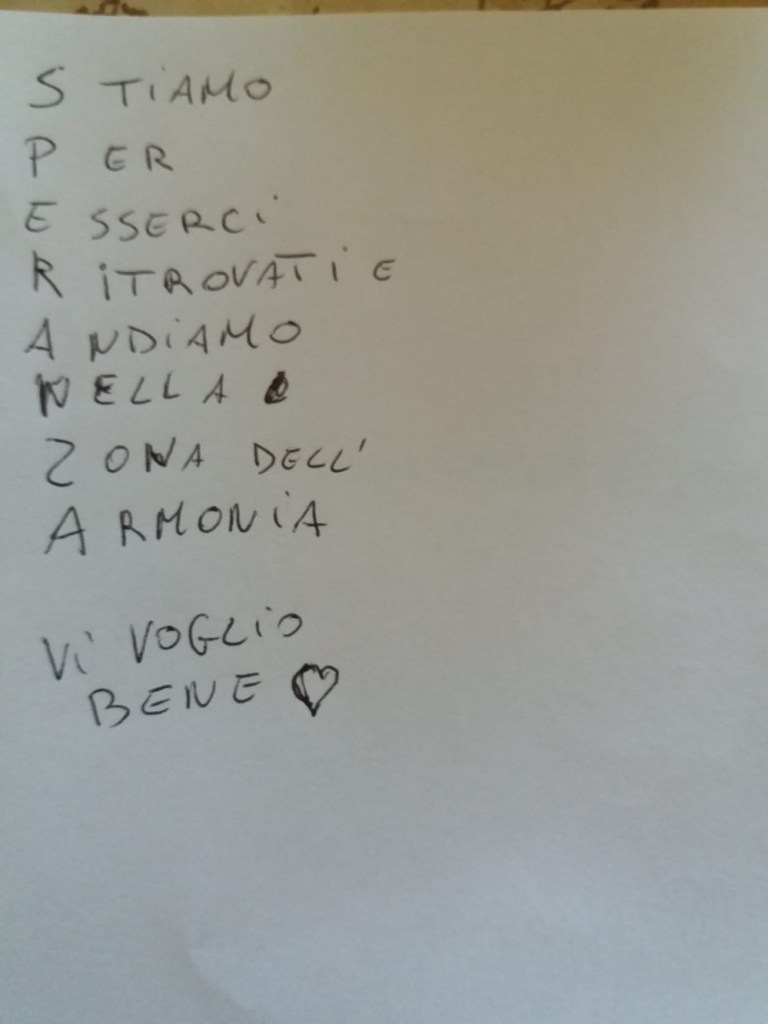 S TiAMO
P ER
E SSERCi
R iTROVATi E
A NDiAMO
N ELLA
Z ONA DELL'
A RMONiA
Vi VOGLiO
BENE